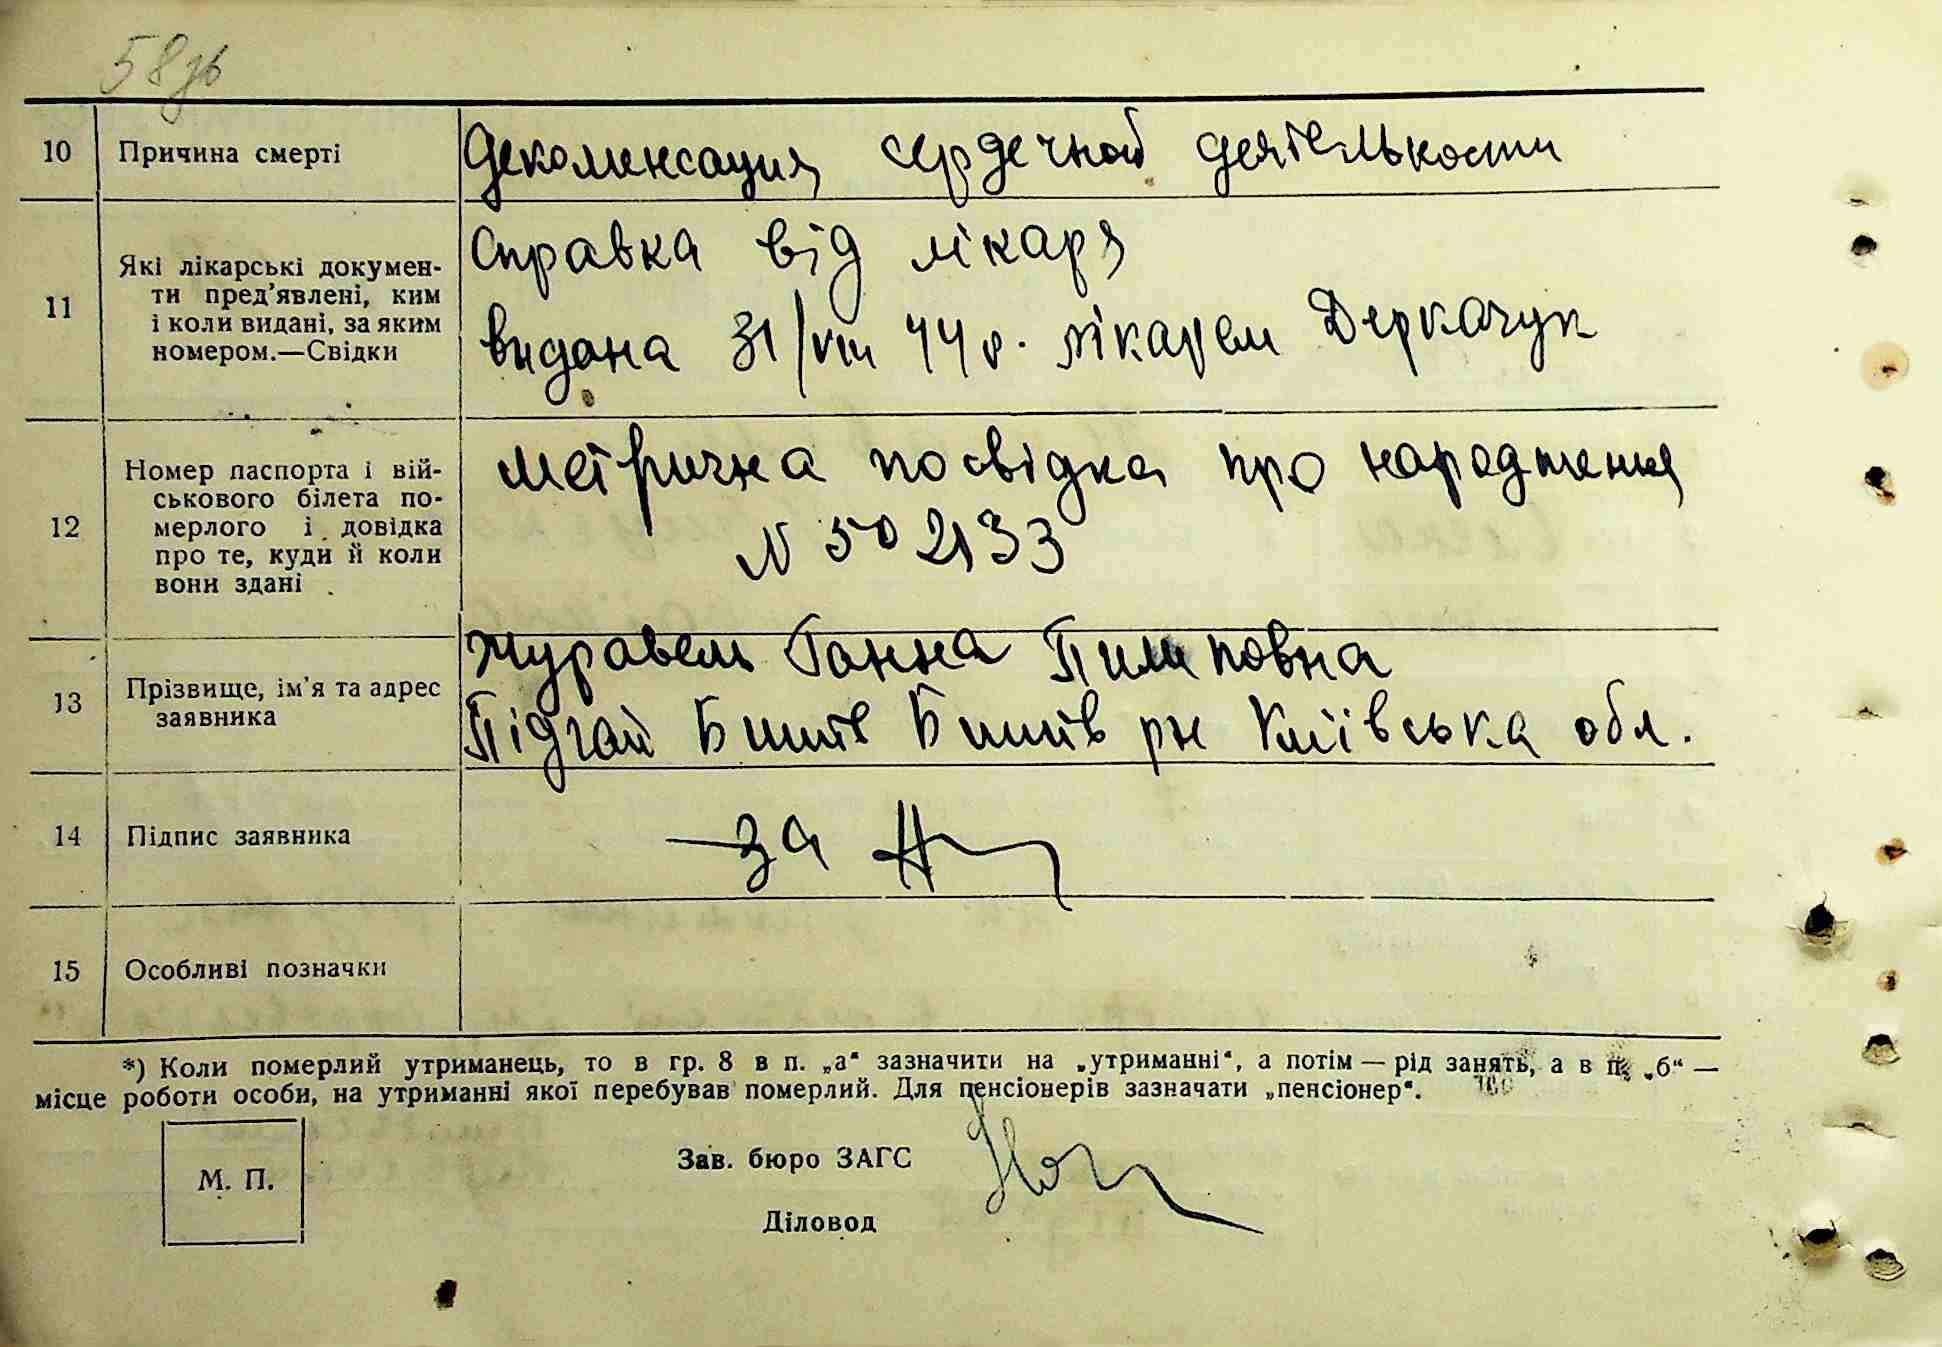 58зв
10 Причина смерті Декоменсация сердечной деятельности
11 Які лікарські докумен-
ти пред’явлені, ким
і коли видані, за яким
номером.—Свідки
Справка від лікаря
видана 31/VIII 44 р. лікарем Деркачук
12 Номер паспорта і вій-
ськового білета по-
мерлого і довідка
про те, куди й коли
вони здані
метрична посвідка про народження
N 502133
13 Прізвище, ім’я та адрес
заявника
Журавель Ганна Пилиповна
Підгай Бишів Бишів рн Київська обл.
14 Підпис заявника за
15 Особливі позначки
*) Коли померлий утриманець, то в гр. 8 в п. „а“ зазначити на „утриманні“, а потім — рід занять, а в п. „б“ —
місце роботи особи, на утриманні якої перебував померлий. Для пенсіонерів зазначати „пенсіонер“.
М. П.
Зав. бюро ЗАГС
Діловод